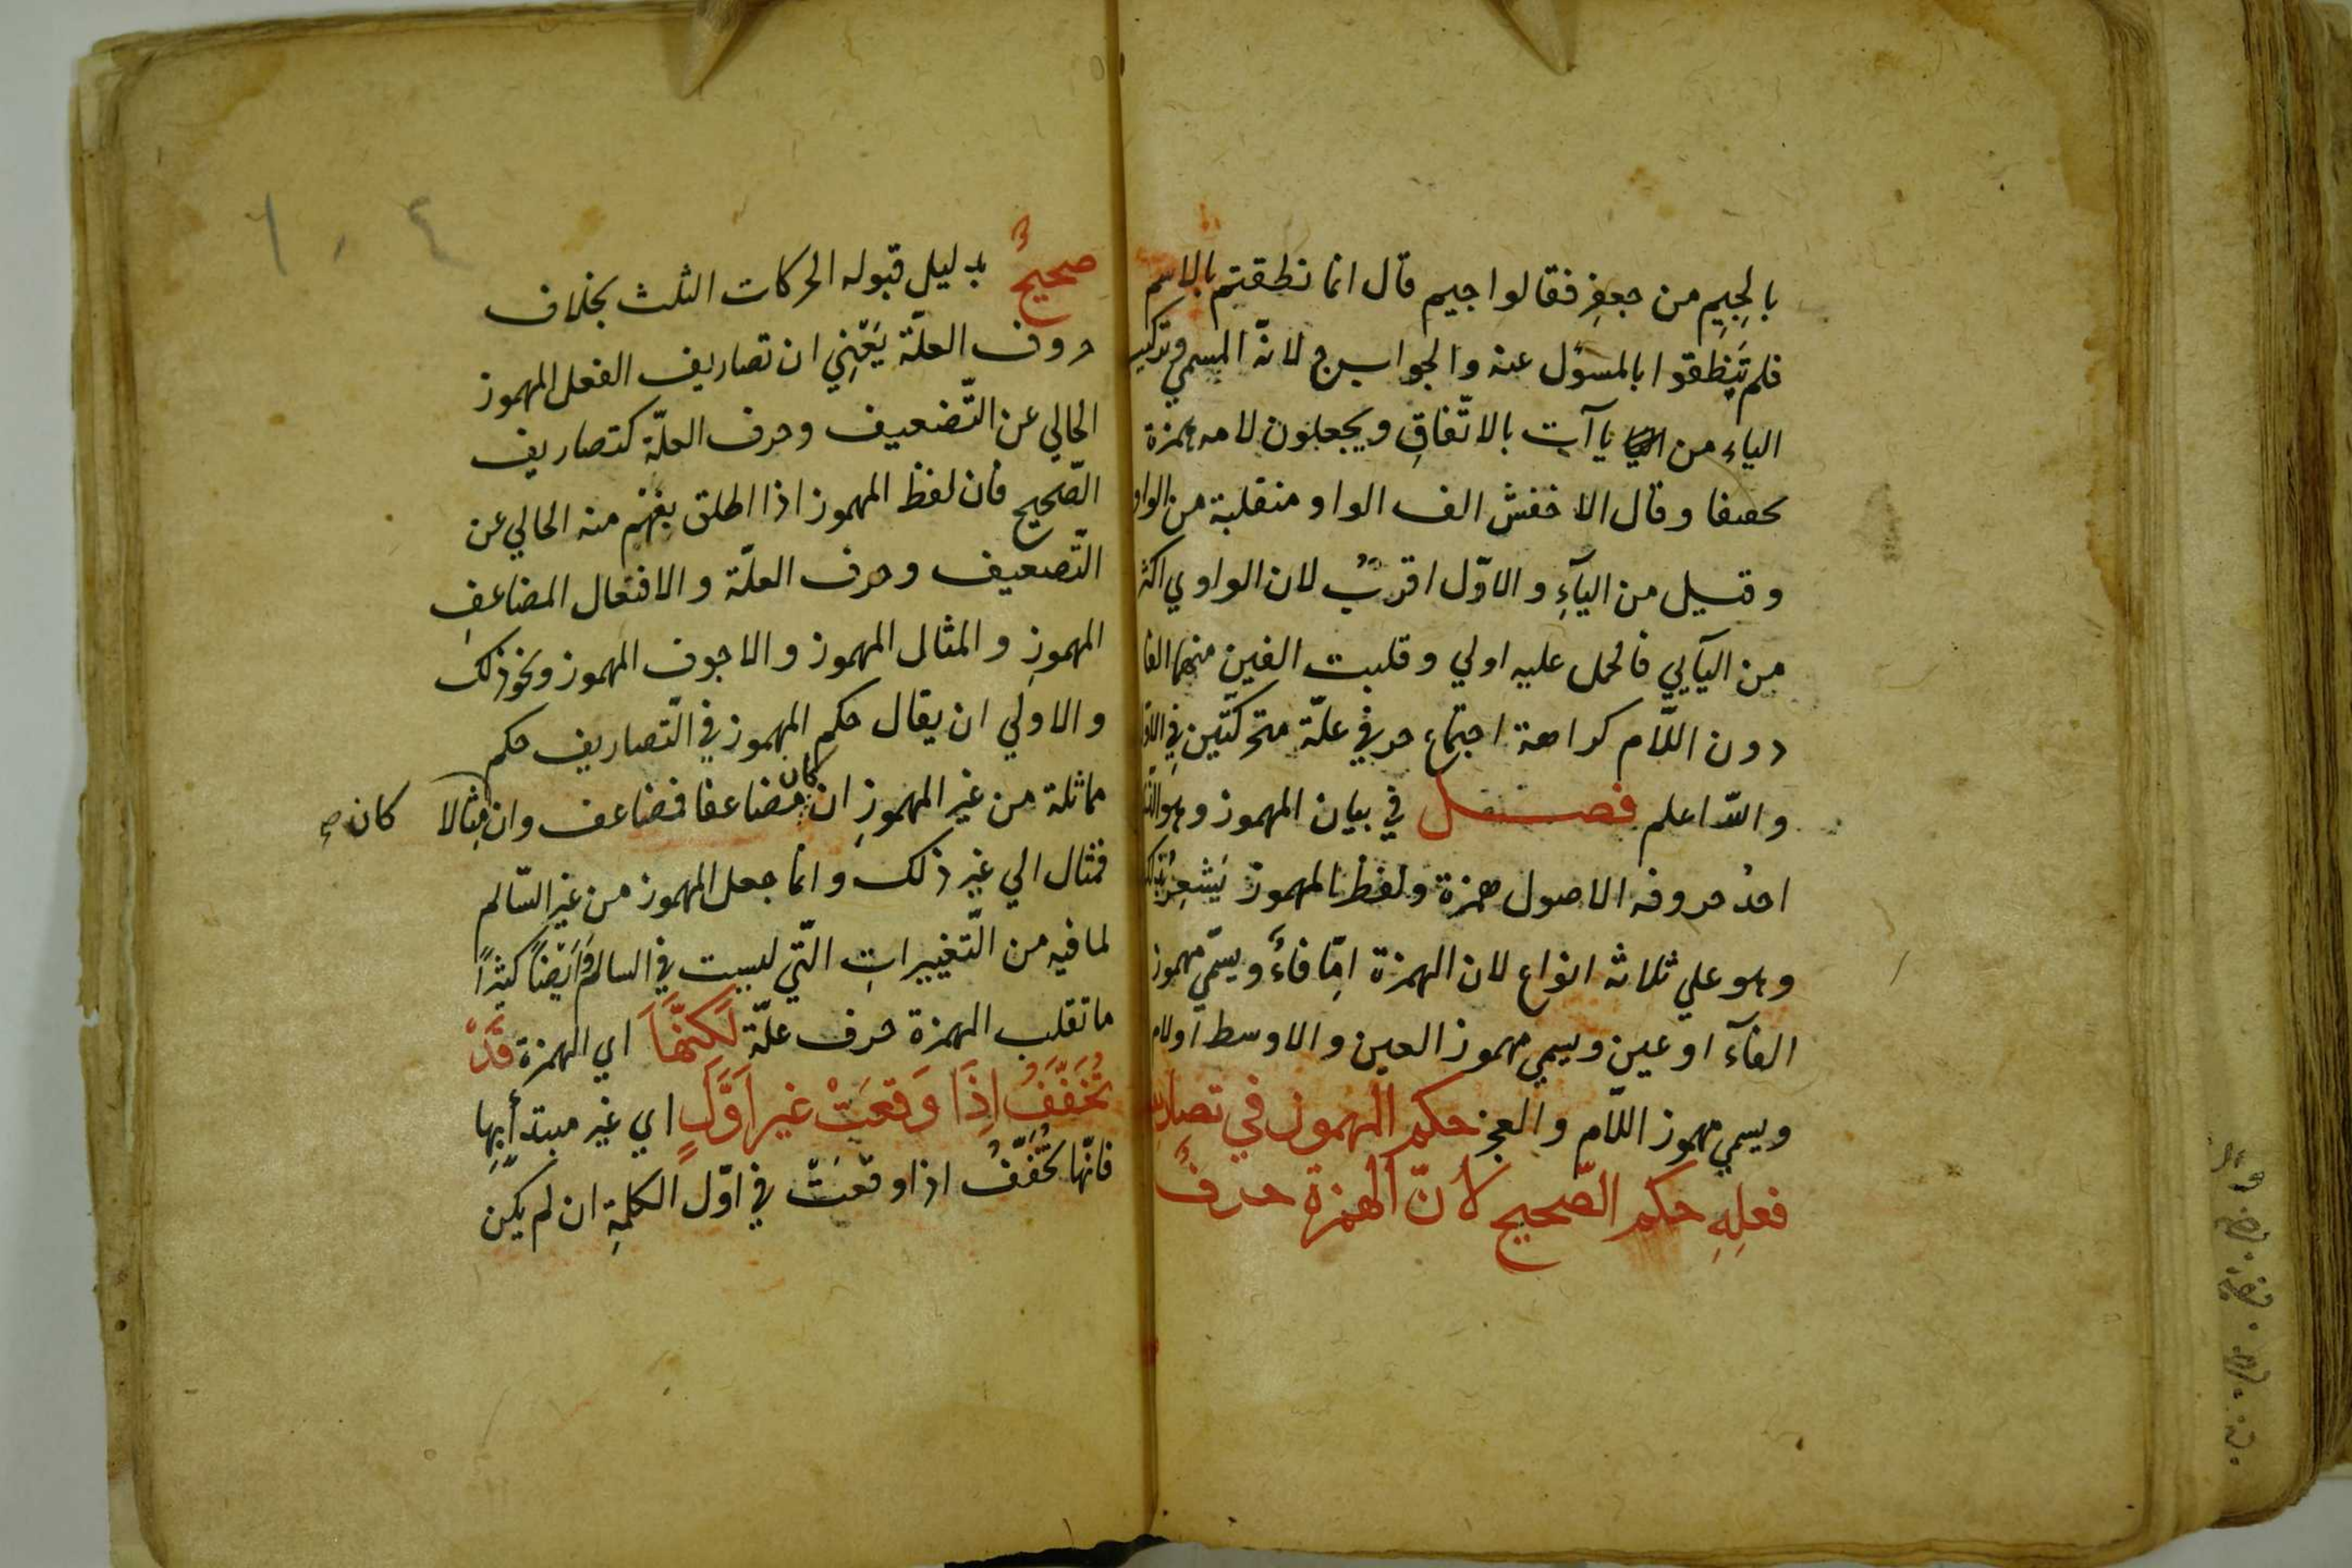 بالجِيمِ من جعفرٍ فقالوا جيم قال انما نطقتم بالاسم
فلم تَنطقوا بالمسؤل عنه والجواب ج لانّه المسمي وتركيب
الياء من ياآت بالاتّفاقِ ويجعلون لامه همزة
تخفيفا وقال الاخفش الف الواو منقلبة من الواو
وقيل من اليآءِ والاوّل اقربُ لان الواوي اكثر
من اليآيي فالحمل عليه اولي وقلبت العين منهما الفا
دون اللّام كراهة اجتماع حرفي علّة متحركتين في
والله اعلم فصل في بيان المهموز وهو الذي
احدُ حروفه الاصول همزة ولفظ المهموز يَشعِرُ بذلك
وهو علي ثلاثه انواع لان الهمزة امّا فاءٌ ويسمّي مهموز
الفآء او عين ويسمي مهموز العين والاوسط اولام
ويسمي مهموز اللّام والعجز حكم المهموز في تصاريف
فعلِهِ حكم الصّحيح لانّ الهمزة حرفٌ
٦٠٤
صحيحٌ بدليل قبوله الحركات الثلث بخلاف
حروف العلّة يَعْنِي ان تصاريف الفعل المهموز
الخالي عن التّضعيف وحرف العلّة كتصاريف
الصّحيح فان لفظ المهموز اذا اطلق يفهم منه الخالي عن
التّضعيف وحرف العلّة والا فتقال المضاعفِ
المهموزِ والمثال المهموز والاجوف المهموز ونحو ذلك
والاولي ان يقال حكم المهموز في التّصاريف حكم
مماثلة من غير المهموزِ ان كان مضاعفا فمضاعف وان مثالا كان صح
فمثال الي غير ذلك وانما جعل المهموز من غير السّالم
لما فيه من التّغييراتِ الّتي ليست في السالم وَايْضاً كثيراً
ما تقلب الهمزة حرف علّة لَكنّهَا اي الهمزة قَدْ
تُخَفَّفُ اِذَا وَقعَتْ غير اَوَّلٍ اي غير مبتدأبِهِا
فانّها تُخَفَّفُ اذا وقعَتْ في اوّل الكلمةِ ان لم يكن